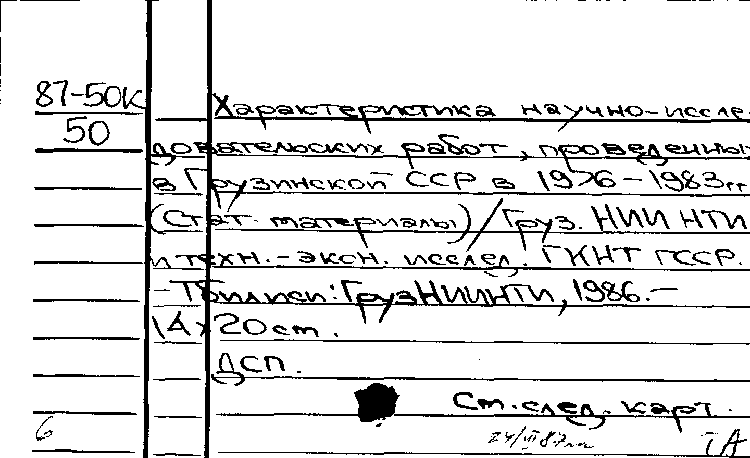 87-50К
50
Характеристика научно-иссле
довательских работ, проведенных
в Грузинской ССР в 1976-1983гг
(Стат. материалы)/Груз. НИИ НТИ
и техн.-экон. исслед. ГКНТ ГССР.
-Тбилиси: ГрузНИИНТИ, 1986.-
14х20см.
ДСП.
См. след. карт.
6
ТА